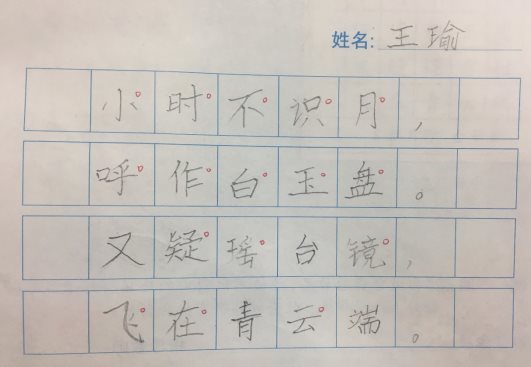 姓名: 王瑜
小时不识月，
呼作白玉盘。
又疑瑶台镜，
飞在青云端。